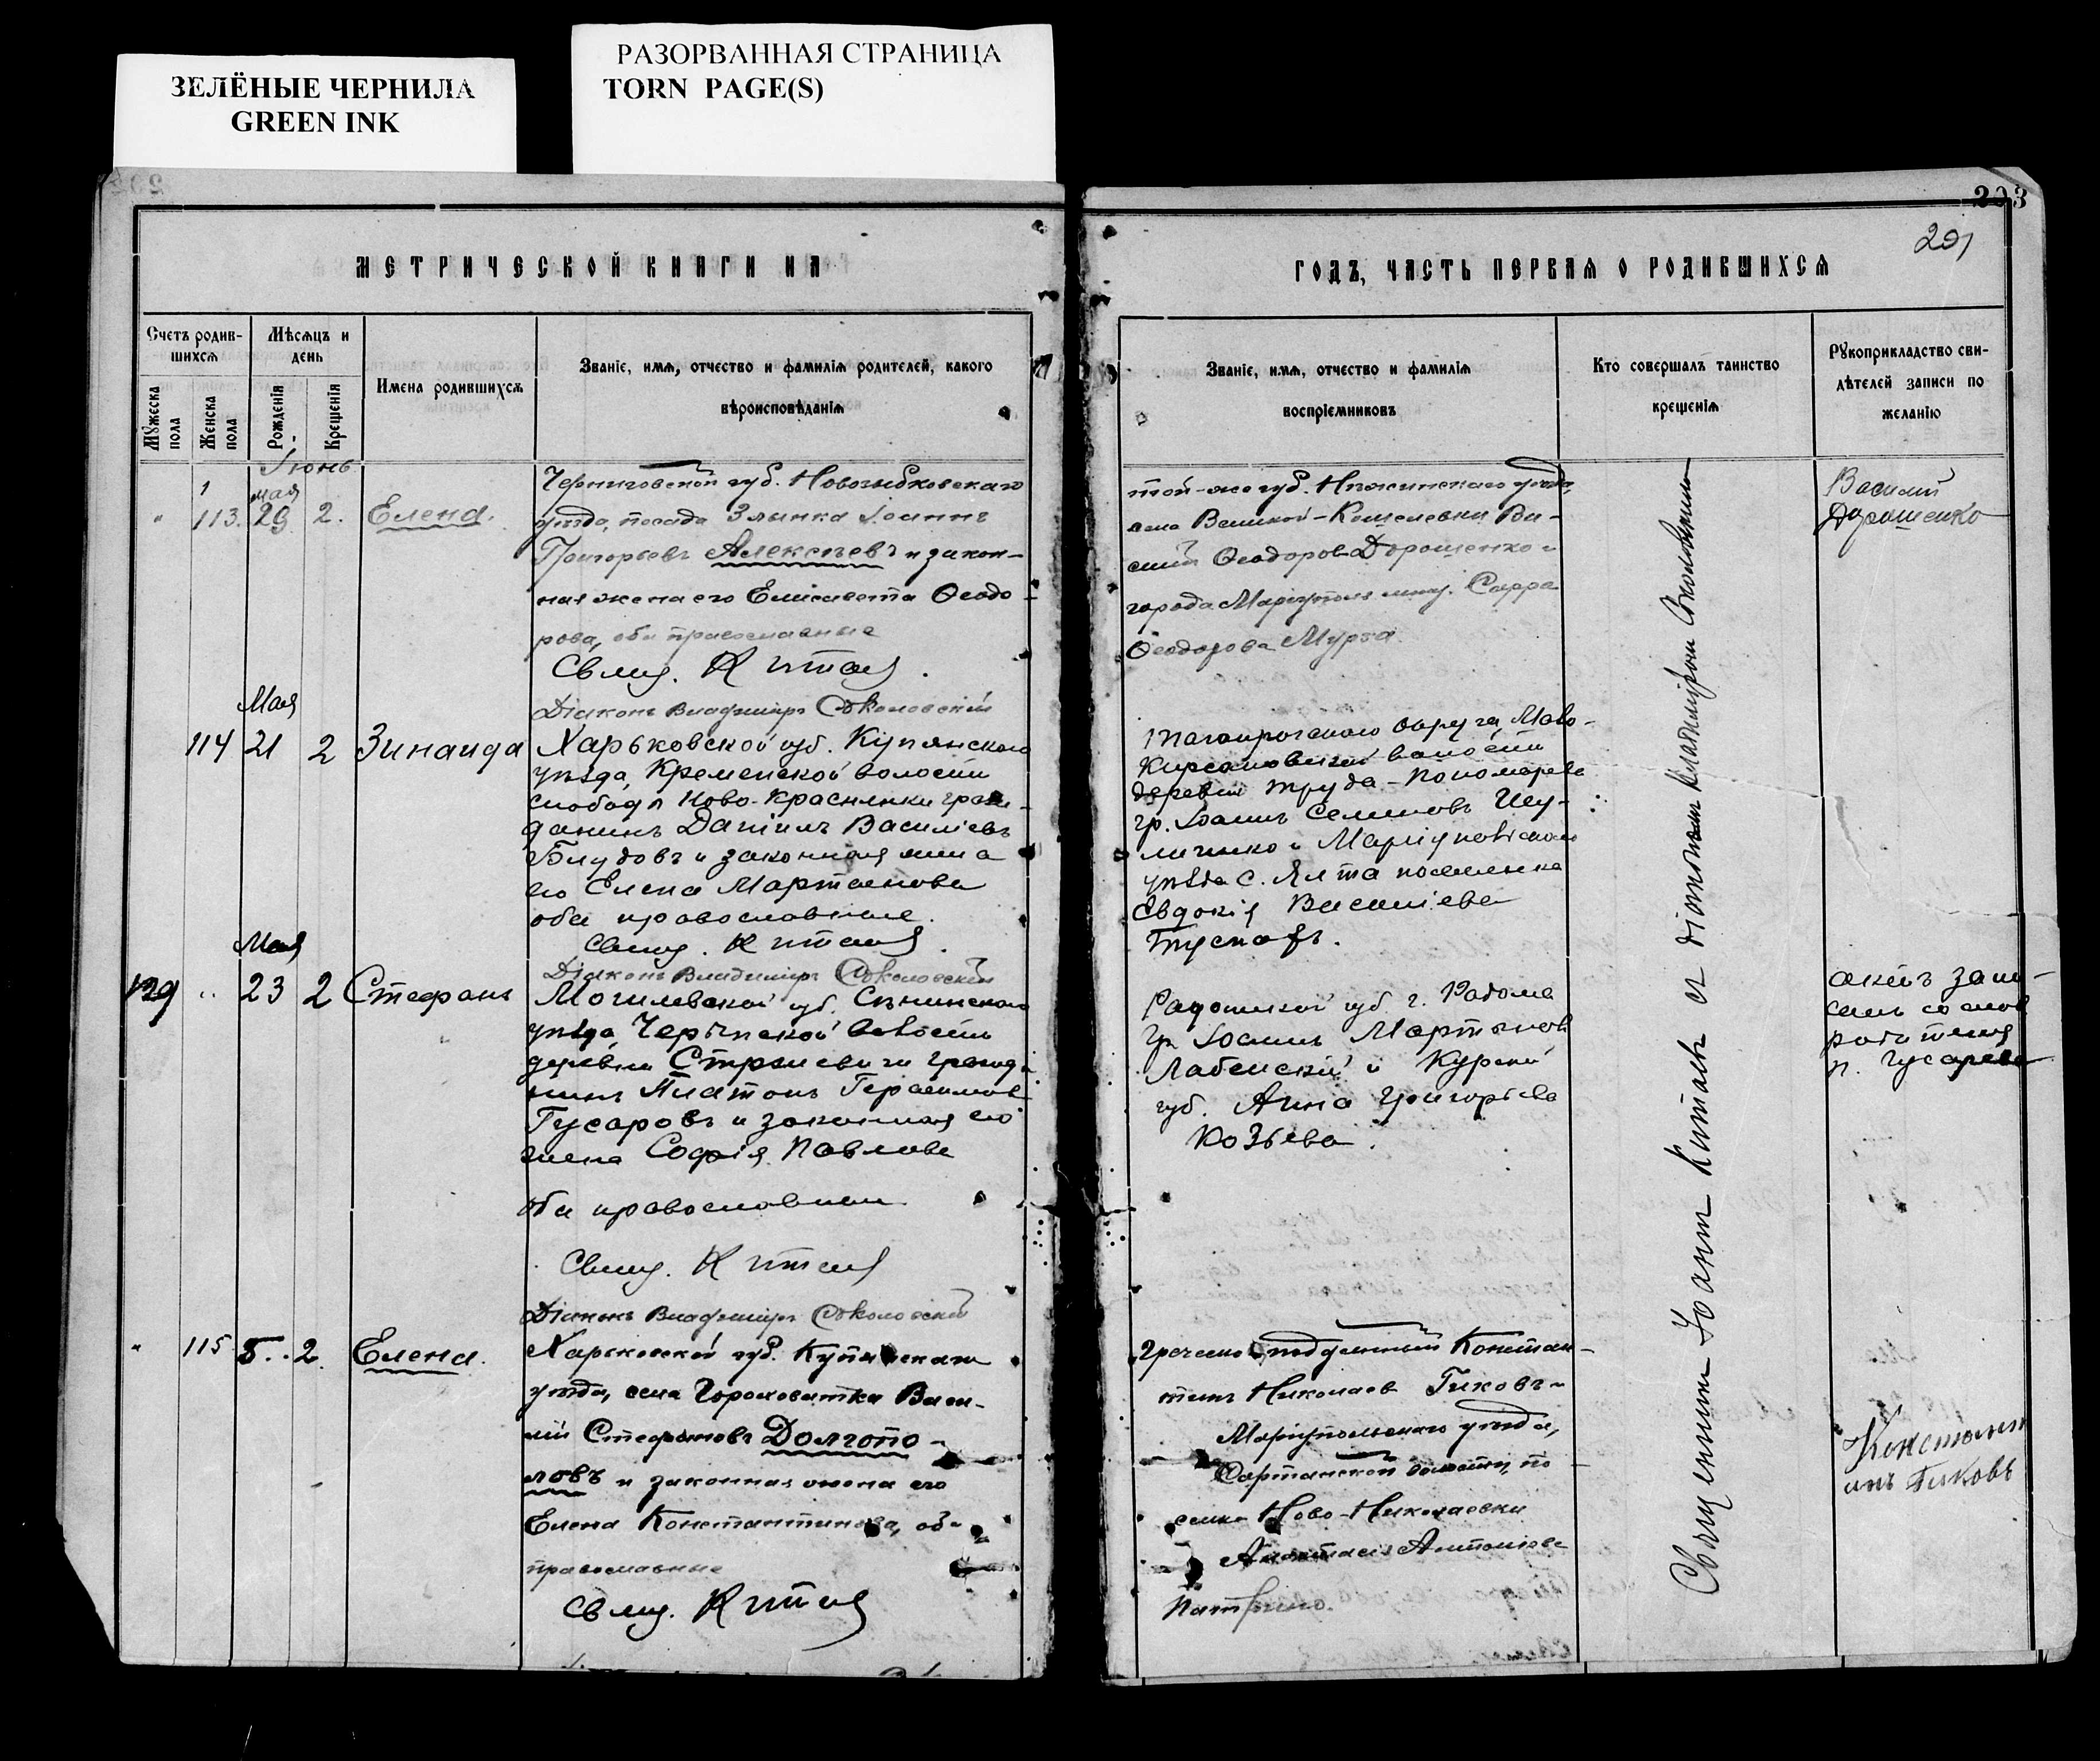 ЗЕЛЁНЫЕ ЧЕРНИЛА
GREEN INK
РАЗОРВАННАЯ СТРАНИЦА
TORN PAGE(S)
МЕТРИЧЕСКОЙ КНИГИ НА
Счетъ родив-
шихся
Мѣсяцъ и
день
Мужеска
пола
Женска
пола
Рожденія
Крещенія
Имена родившихся
Званіе, имя, отчество и фамилія родителей, какого
вѣроисповѣданія
Іюнь
мая
113. 29 2. Елена.
Черниговской губ. Новозыбковскаго
уѣзда, посада Злынка Іоаннъ
Григорьевъ Алексѣевъ и закон-
ная жена его Елисавета Ѳеодо-
рова, оба православные
Свящ. Китаевъ
Діаконъ Владиміръ Соколовскій
Мая
114 21 2 Зинаида
Харьковской губ. Купянскаго
уѣзда, Кременской волости
слободы Ново-Краснянки граж-
данинъ Даніилъ Василіевъ
Блудовъ и законная жена
его Елена Мартынова
оба православные.
Свящ. Китаевъ
Діаконъ Владиміръ Соколовскій
Мая
129 23 2 Стефанъ
Могилевской губ. Сѣнинскаго
уѣзда, волости
деревни гражда-
нинъ Платонъ Герасимовъ
Гусаровъ и законная его
жена Софія Павлова
оба православные
Свящ. Китаевъ
Діаконъ Владиміръ Соколовскій
115 5. 2 Елена.
Харьковской губ. Купянскаго
уѣзда, села Гороховатка Васи-
лій Стефановъ Долгопо-
ловъ и законная жена его
Елена Константинова, оба
православные
Свящ. Китаевъ
203
201
ГОДЪ, ЧАСТЬ ПЕРВАЯ О РОДИВШИХСЯ
Званіе, имя, отчество и фамилія
воспріемниковъ
Кто совершалъ таинство
крещенія
Рукоприкладство сви-
дѣтелей записи по
желанію
той-же губ. Нѣжинскаго уѣзда,
села Великой-Кошелевки Ва-
силій Ѳеодоровъ Дорошенко и
города Маріуполя мѣщ. Сарра
Ѳеодорова Мурза
Василій
Дорошенко
Таганрогскаго округа, Ново-
Кирсановской волости
деревни Труда-Пономарева
гр. Іоаннъ Семеновъ Шу-
личенко и Маріупольскаго
уѣзда с. Ялта поселянка
Евдокія Василіева
Радомской губ. г. Радома
гр. Іоаннъ Мартыновъ
Лабенскій и Курской
губ. Анна Григорьева
Козьева.
сей запи-
родителя
п. Гусарева
Священникъ Іоаннъ Китаевъ съ діакономъ Владиміромъ Соколовскимъ
Греческо-подданный Констан-
тинъ Николаевъ Гиковъ и
Маріупольскаго уѣзда,
Сартанской волости, по-
селка Ново-Николаевки
Анастасія Антоніева
Константи
инъ Гиковъ